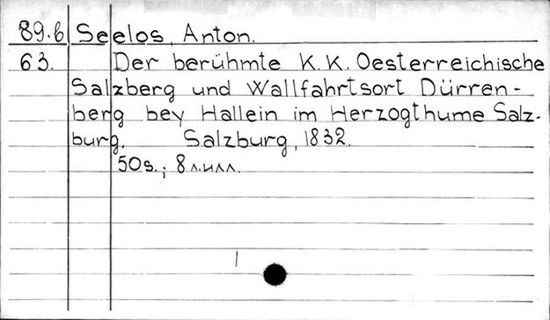 89.6 Seelos, Anton.
63. Der berühmte K.K. Oesterreichische
Salzberg und Wallfahrtsort Dürren-
berg bey Hallein im Herzogthume Salz-
burg. Salzburg, 1832.
50s.; 8 л.илл.